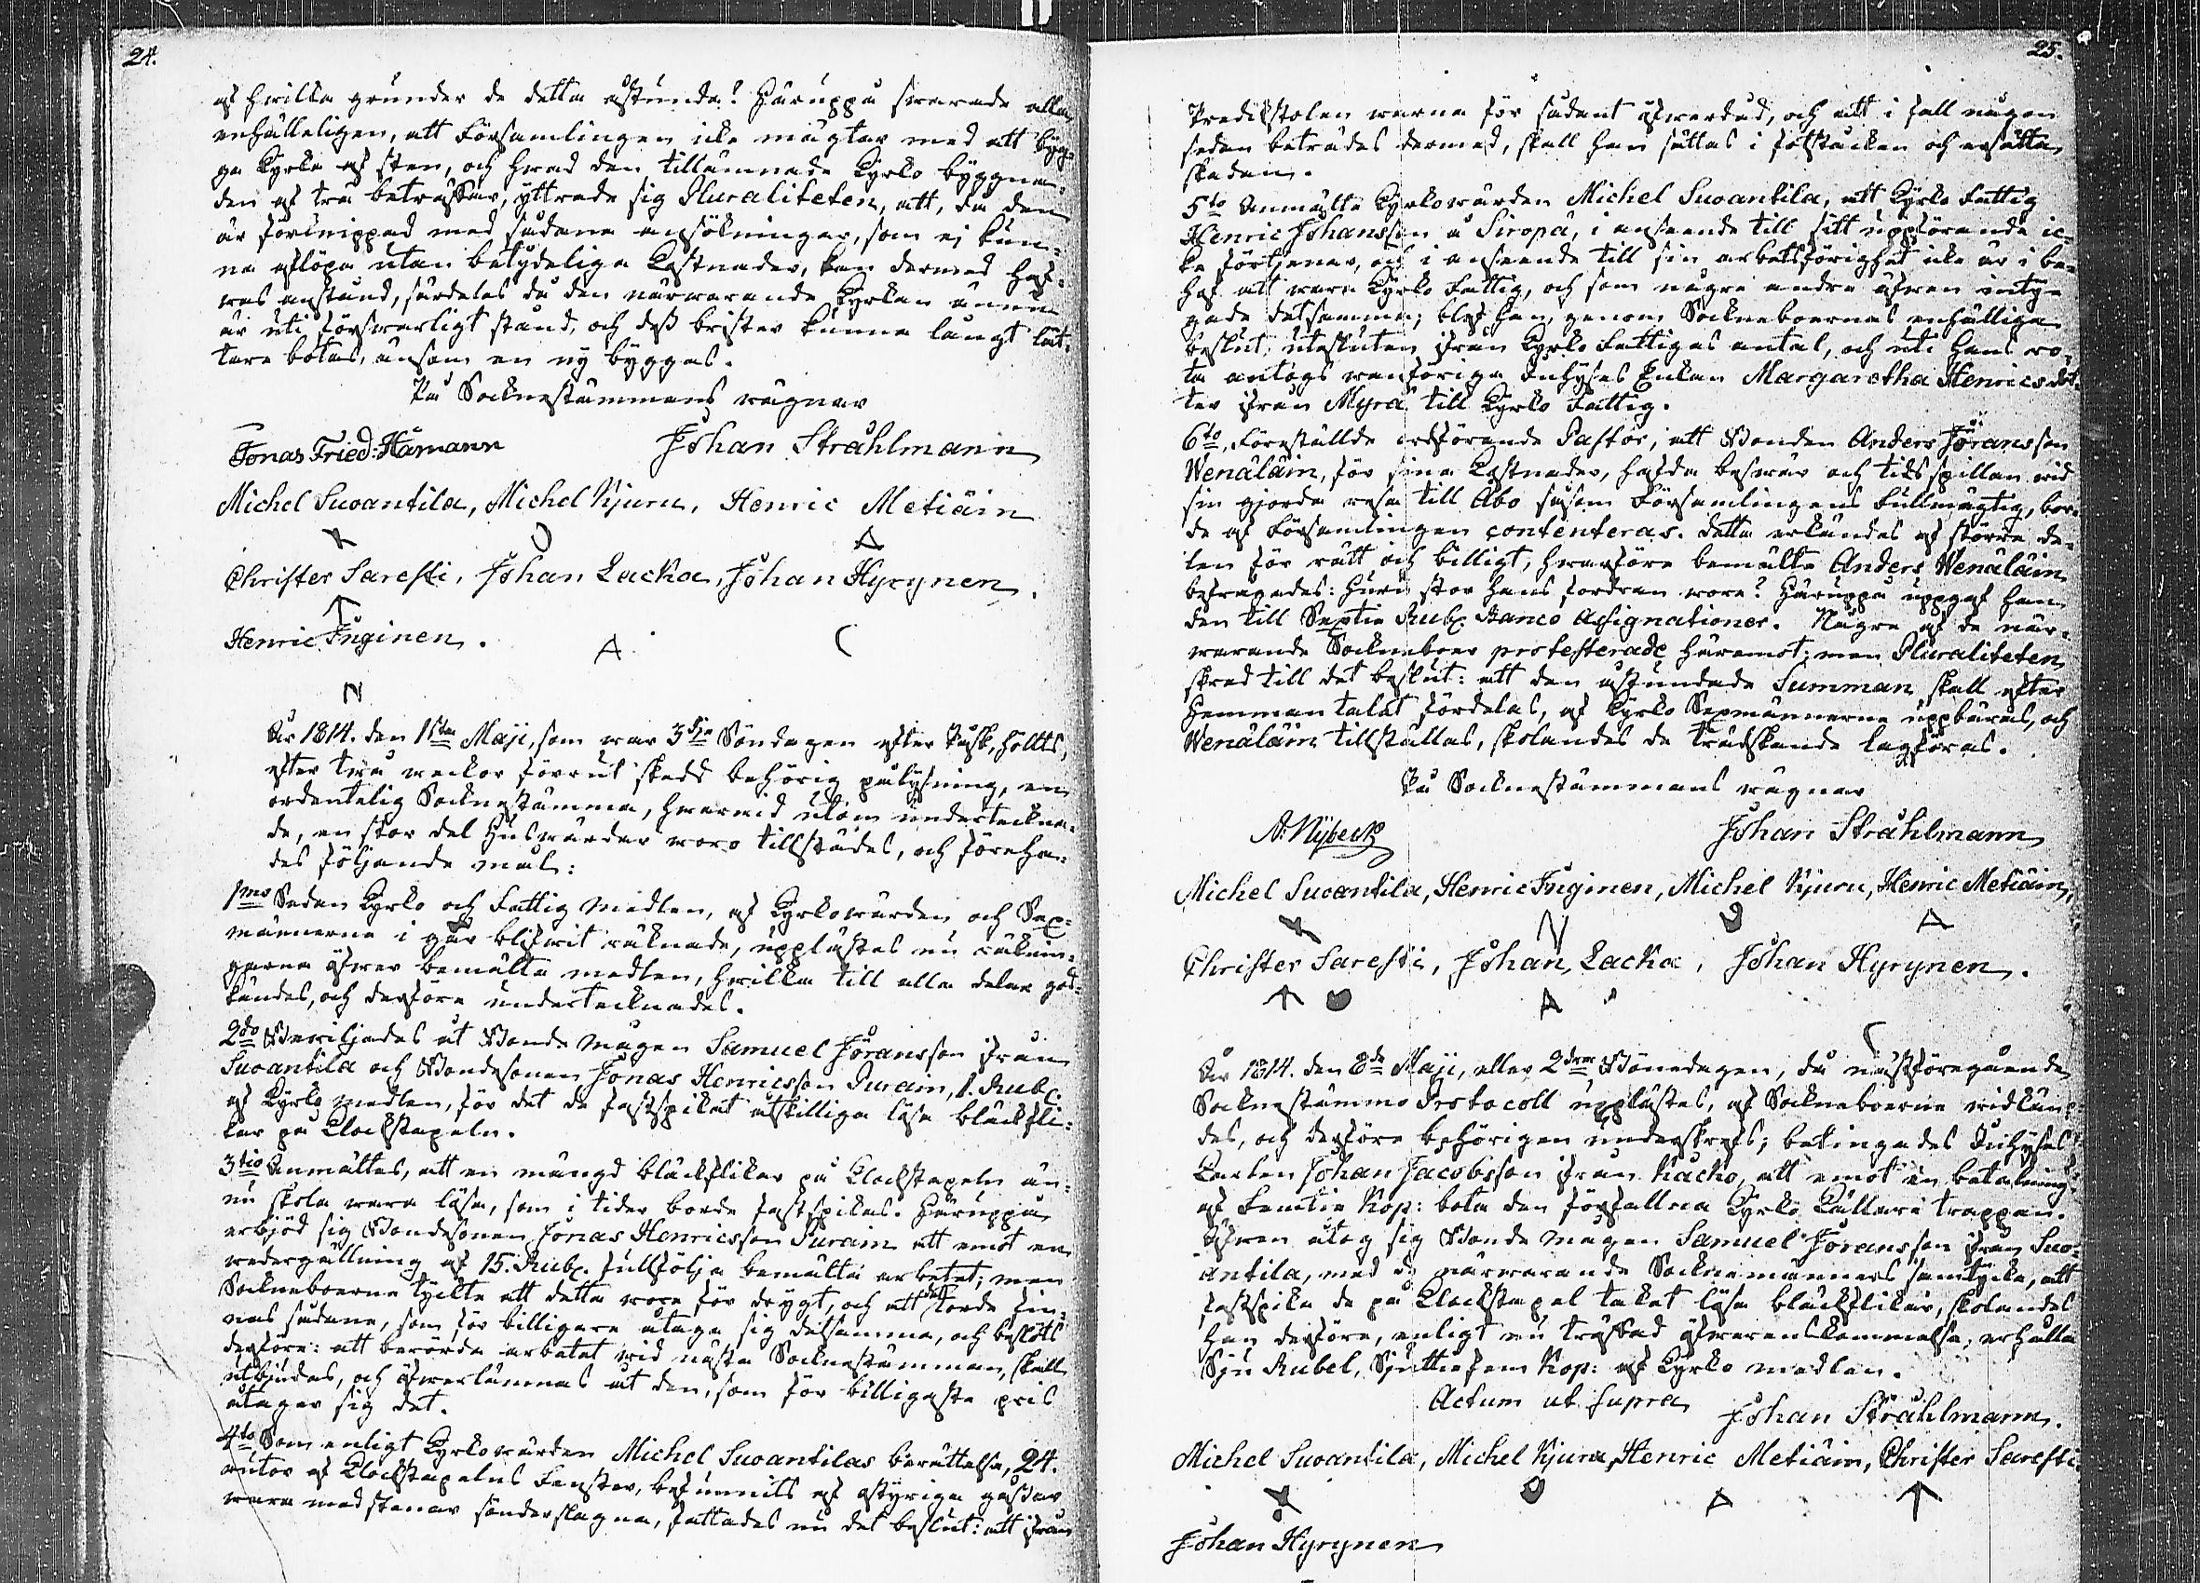 24.
af hwilka grunder de detta åstunda? Häruppå swarade alla
enhälleligen, att Församlingen icke mägtar med att byg-
ga Kyrka af sten, och hwad den tillämnade Kyrko byggna-
den af trä beträffar, yttrade sig Pluraliteten, att, då den
är förknippad med sådana ansökningar, som ej kun-
na aflöpa utan betydeliga Kostnader, kan dermed haf-
was anstånd, särdeles då den närwarande Kyrkan ännu
är uti förswarligt stånd, och dess brister kunna långt lät-
tare botas, änsom en ny byggas.
På Socknestämmans wägnar
Jonas Fried: Hämann Johan Stråhlmann
Michel Suoantila, Michel Kjuru, Henric Metiäin
Christer Saresti, Johan Lacka, Johan Hyrynen.
Henric Inginen.
År 1814. den 1sta Maji, som war 3dje Söndagen efter Påsk, hölts,
efter twå weckor förrut skedd behörig pålysning, en
ordentelig Socknestämma, hwarwid utom underteckna-
de, en stor del Huswärdar woro tillstädes, och föreha-
des följande mål:
1mo Sedan Kyrko och Fattig Medlen, af Kyrkowärden och Sex-
männerne i går blifwit räknade, upplästes nu räknin-
garna öfwer bemälte medlen, hwilka till alla delar god-
kändes, och derföre undertecknades.
2do Bewiljades åt Bonde Mågen Samuel Jöransson ifrån
Suoantila och Bondesonen Jonas Henricsson Purain, 1. Rubl.
af Kyrko medlen, för det de fastspikat åtskilliga lösa bläckfli-
kar på Klockstapeln.
3tio Anmältes, att en mängd bläckflikar på Klockstapeln än-
nu skola wara lösa, som i tider borde fastspikas. Häruppå
erbjöd sig Bondesonen Jonas Henricsson Purain att emot en
wedergällning af 15. Rubl. fullfölja bemälta arbetet; men
Sockneboerne tyckte att detta wore för drygt, och att det torde fin-
nas sådane, som för billigare åtaga sig detsamma, och beslöts
derföre: att berörde arbetet wid nästa Socknestämman, skall
utbjudas, och öfwerlämnas åt den, som för billigaste pris
åtager sig det.
4to Som enligt Kyrkowärden Michel Suoantilas berättelse, 24.
rutor af Klockstapelns Fenster, befunnits af okyriga gossar
wara med stenar sönderslagna, fattades nu det beslut: att ifrån
25.
Predikstolen warna för sådant öfwerdåd, och att i fall någon
sedan beträdes dermed, skall han sättas i fotstäcken och ersätta
skaden.
5to Anmälte Kyrkowärden Michel Suoantila, att Kyrko Fattig
Henric Johansson å Siropä, i anseende till sitt uppförande ic-
ke förtjenar, och i anseende till sin arbetsförighet icke är i be-
hof att wara Kyrko Fattig, och som några andra äfwen inty-
gade detsamma; blef han, genom Sockneboernas enhälliga
beslut, utesluten ifrån Kyrko Fattigas antal, och uti hans ro-
ta antogs wanföriga Inhyses Enkan Margaretha Henricsdot-
ter ifrån Myrä till Kyrko Fattig.
6to, Föreställde ordförande Pastor, att Bonden Anders Jöransson
Wenäläin, för sina Kostnader, hafda beswär och tidsspillan wid
sin gjorda resa till Åbo såsom Församlingens Fullmägtig, bor-
de af Församlingen contenteras. Detta erkändes af större de-
len för rätt och billigt, hwarföre bemälte Anders Wenäläin
befragades: huru stor hans fordran wore? Häruppå uppgaf han
den till Sextio Rubl. Banco Assignationer. Några af de när-
warande Sockneboer protesterade häremot; men Pluraliteten
skred till det beslut: att den åstundade Summan skall efter
Hemman talet fördelas, af Kyrko Sexmännerne uppbäras, och
Wenäläin tillställas, skolandes de tredskande lagföras.
På Socknestämmans wägnar
A. Nyberg Johan Stråhlmann
Michel Suoantila, Henric Inginen, Michel Kjuru, Henric Metiäin,
Christer Saresti, Johan Lacka, Johan Hyrynen.
År 1814. den 8de Maji, eller 2dra Bönedagen, då nästföregående
Socknestämmo Protocoll upplästes, af Sockneboerne widkän-
des, och derföre behörigen underskrefs; betingades Inhyses
Karlen Johan Jacobsson ifrån Kacko, att emot en betalning
af Femtio Kop: bota den förfallna Kyrko Källare trappan.
Äfwen åtog sig Bonde Mågen Samuel Jöransson ifrån Suo-
antila, med de närwarande Socknemännens samtycke, att
fastspika de på Klockstapel taket lösa bläckflikar, skolandes
han derföre, enligt nu träffad öfwerenskommelse, erhålla
Sju Rubel, Sjuttiofem Kop: af Kyrko medlen.
Actum ut supra Johan Stråhlmann.
Michel Suoantila, Michel Kjuru, Henric Metiäin, Christer Saresti.
Johan Hyrynen